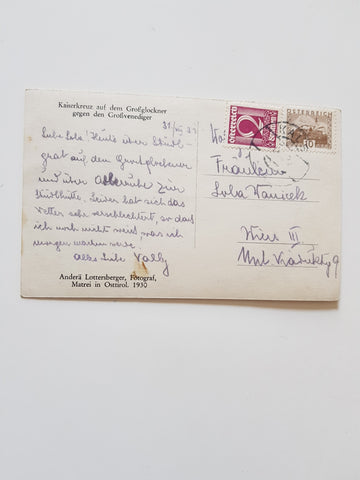 Kaiserkreuz auf dem Großglockner
gegen den Großvenediger
Liebe Lola! Heute über Stüdl-
grat auf den Großglockner
und über zur
Stüdlhütte. Leider hat sich das
Wetter sehr verschlechtert, so dass
ich noch nicht weiß, was ich
morgen machen werde.
Alles Liebe Vally
Anderä Lottersberger, Fotograf,
Matrei in Osttirol. 1930
2
ÖSTERREICH
Fräulein
Lola
Wien III